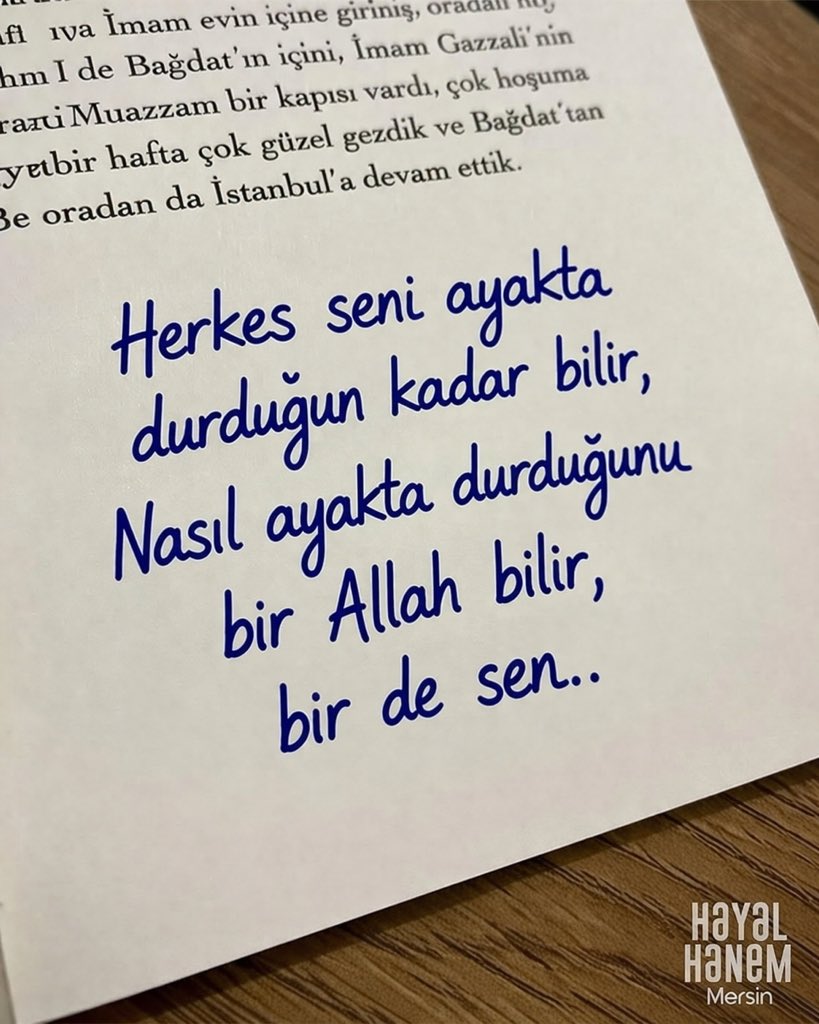 iva İmam evin içine giriniş, oradan
I de Bağdat'ın içini, İmam Gazzali'nin
Muazzam bir kapısı vardı, çok hoşuma
bir hafta çok güzel gezdik ve Bağdat'tan
Be oradan da İstanbul'a devam ettik.
Herkes seni ayakta
durduğun kadar bilir,
Nasıl ayakta durduğunu
bir Allah bilir,
bir de sen..
HAYAL
HANEM
Mersin